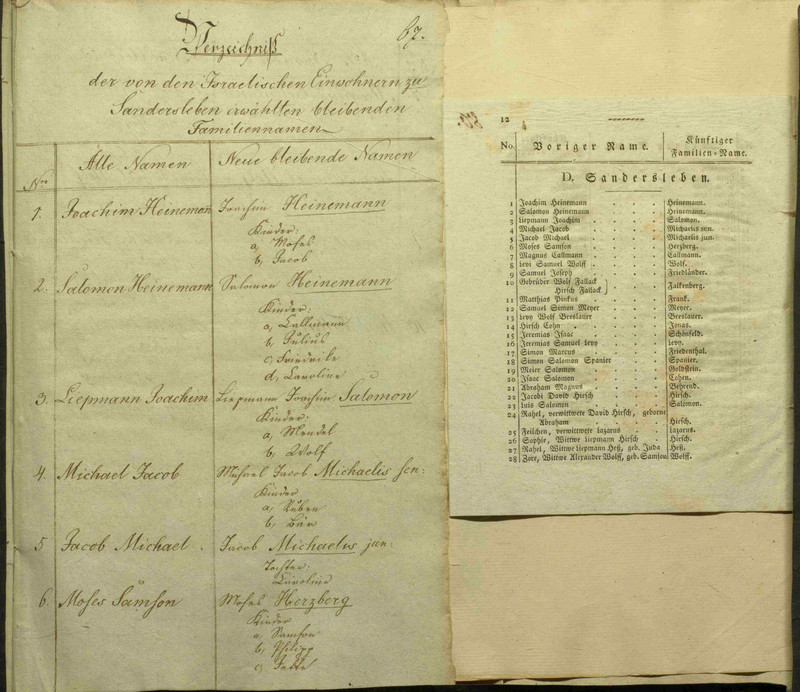 67.
Verzeichniß
der von den Israelischen Einwohnern zu
Sandersleben erwählten bleibenden
Familiennamen
Nro Alte Namen Neue bleibende Namen
1. Joachim Heinemann Joachim Heinemann
Kinder:
a, Moses
b, Jacob
2. Salomon Heinemann Salomon Heinemann
Kinder:
a, Callmann
b, Julius
c, Friedrike
d, Caroline
3. Liepmann Joachim Liepmann Joachim Salomon
Kinder:
a, Mendel
b, Wolf
4. Michael Jacob Michael Jacob Michaelis sen:
Kinder
a, Ruben
b, Bär
5 Jacob Michael. Jacob Michaelis jun:
Tochter:
Caroline
6. Moses Samson Moses Herzberg
Kinder
a, Samson
b, Philipp
c,
12
No. Voriger Name. Künftiger
Familien-Name.
D. Sandersleben.
1 Joachim Heinemann . . . Heinemann.
2 Salomon Heinemann . . . Heinemann.
3 Liepmann Joachim . . . Salomon.
4 Michael Jacob . . . Michaelis sen.
5 Jacob Michael . . . Michaelis jun.
6 Moses Samson . . . Herzberg.
7 Magnus Callmann . . . Callmann.
8 Levi Samuel Wolff . . . Wolf.
9 Samuel Joseph . . . Friedländer.
10 Gebrüder Wolf Fallack
Hirsch Fallack } . . Falkenberg.
11 Matthias Pinkus . . . Frank.
12 Samuel Simon Meyer . . . Meyer.
13 Levy Wolf Breslauer . . . Breslauer.
14 Hirsch Cohn . . . Jonas.
15 Jeremias Isaac . . . Schönfeld.
16 Jeremias Samuel Levy . . . Levy.
17 Simon Marcus . . . Friedenthal.
18 Simon Salomon Spanier . . . Spanier.
19 Meier Salomon . . . Goldstein.
20 Isaac Salomon . . . Cohen.
21 Abraham Magnus . . . Behrend.
22 Jacobi David Hirsch . . . Hirsch.
23 Luis Salomon . . . Salomon.
24 Rahel, verwittwete David Hirsch, geborne
Abraham . . . Hirsch.
25 Feilchen, verwittwete Lazarus . . Lazarus.
26 Sophie, Wittwe Liepmann Hirsch . Hirsch.
27 Rahel, Wittwe Liepmann Heß, geb. Juda Heß.
28 Zore, Wittwe Alexander Wolff, geb. Samson Wolff.